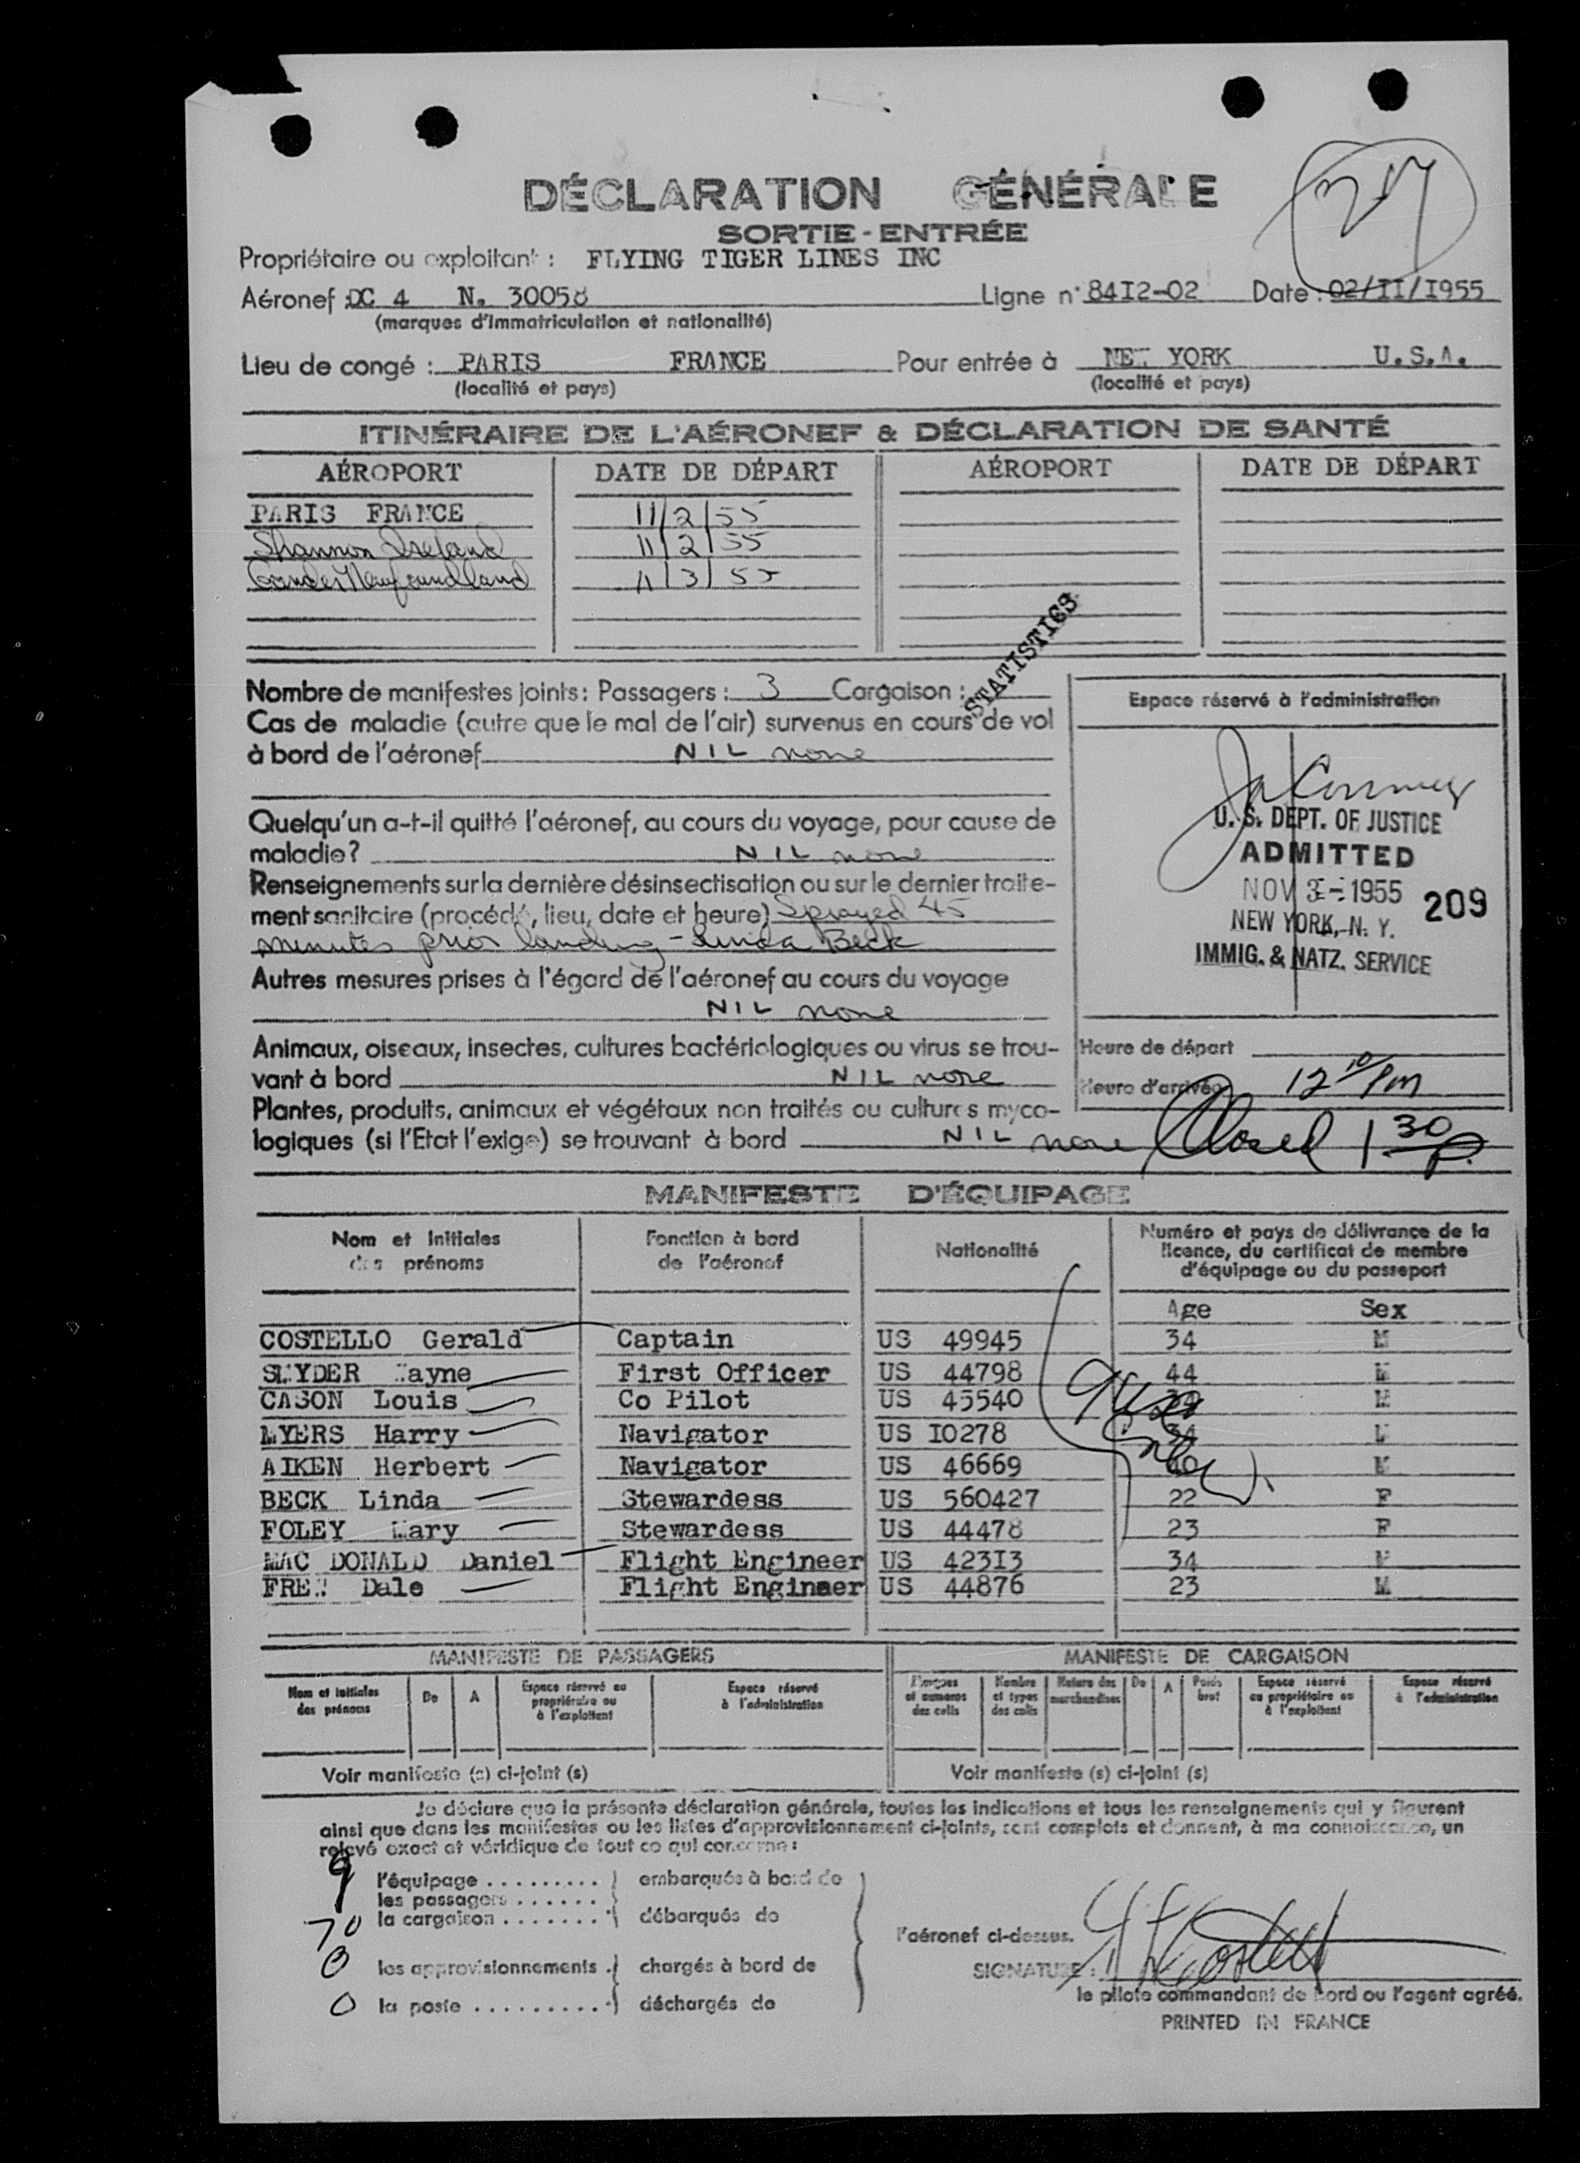 217
DÉCLARATION GÉNÉRALE
SORTIE-ENTRÉE
Propriétaire ou exploitant : FLYING TIGER LINES INC
Aéronef : DC 4 N. 30058 Ligne n° 84I2-02 Date : 02/II/I955
(marques d'immatriculation et nationalité)
Lieu de congé : PARIS FRANCE Pour entrée à NEW YORK U.S.A.
(localité et pays) (localité et pays)
ITINÉRAIRE DE L'AÉRONEF & DÉCLARATION DE SANTÉ
AÉROPORT DATE DE DÉPART AÉROPORT DATE DE DÉPART
PARIS FRANCE 11/2/55
Shannon Ireland 11/2/55
Gander Newfoundland 11/3/55
STATISTICS
Nombre de manifestes joints : Passagers : 3 Cargaison :
Cas de maladie (autre que le mal de l'air) survenus en cours de vol
à bord de l'aéronef NIL none
Quelqu'un a-t-il quitté l'aéronef, au cours du voyage, pour cause de
maladie? NIL none
Renseignements sur la dernière désinsectisation ou sur le dernier traite-
ment sanitaire (procédé, lieu, date et heure) Sprayed 45
minutes prior landing - Linda Beck
Autres mesures prises à l'égard de l'aéronef au cours du voyage
NIL none
Animaux, oiseaux, insectes, cultures bactériologiques ou virus se trou-
vant à bord NIL none
Plantes, produits, animaux et végétaux non traités ou cultures myco-
logiques (si l'Etat l'exige) se trouvant à bord NIL none
Espace réservé à l'administration
U.S. DEPT. OF JUSTICE
ADMITTED
NOV 3 - 1955 209
NEW YORK, N. Y.
IMMIG. & NATZ. SERVICE
Heure de départ
Heure d'arrivée 12 10/PM
Closed 1 30 p.
MANIFESTE D'ÉQUIPAGE
Nom et initiales des prénoms Fonction à bord de l'aéronef Nationalité Numéro et pays de délivrance de la licence, du certificat de membre d'équipage ou du passeport
Age Sex
COSTELLO Gerald Captain US 49945 34 M
SNYDER Wayne First Officer US 44798 44 M
CASON Louis Co Pilot US 45540 M
MYERS Harry Navigator US I0278 34 M
AIKEN Herbert Navigator US 46669 40 M
BECK Linda Stewardess US 560427 22 F
FOLEY Mary Stewardess US 44478 23 F
MAC DONALD Daniel Flight Engineer US 423I3 34 M
FREW Dale Flight Engineer US 44876 23 M
MANIFESTE DE PASSAGERS MANIFESTE DE CARGAISON
Nom et initiales des prénoms De A Espace réservé au propriétaire ou à l'exploitant Espace réservé à l'administration Marques et numéros des colis Nombre et types des colis Nature des marchandises De A Poids brut Espace réservé au propriétaire ou à l'exploitant Espace réservé à l'administration
Voir manifeste (s) ci-joint (s) Voir manifeste (s) ci-joint (s)
Je déclare que la présente déclaration générale, toutes les indications et tous les renseignements qui y figurent
ainsi que dans les manifestes ou les listes d'approvisionnement ci-joints, sont complets et donnent, à ma connaissance, un
relevé exact et véridique de tout ce qui concerne :
9 l'équipage . . . . . . . . . } embarqués à bord de
les passagers . . . . . .
70 la cargaison . . . . . . . . } débarqués de
l'aéronef ci-dessus.
0 les approvisionnements . } chargés à bord de
SIGNATURE :
le pilote commandant de bord ou l'agent agréé.
0 la poste . . . . . . . . . . } déchargés de
PRINTED IN FRANCE